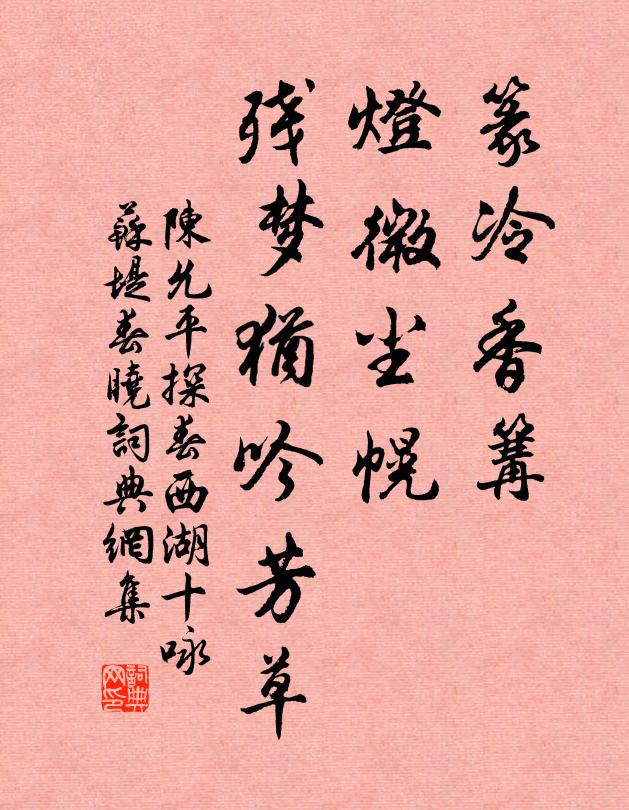 篆冷香篝
燈微尘幌
残梦猶吟芳草
陳允平探春西湖十咏
蘇堤春曉詞典網集
詞典
网印